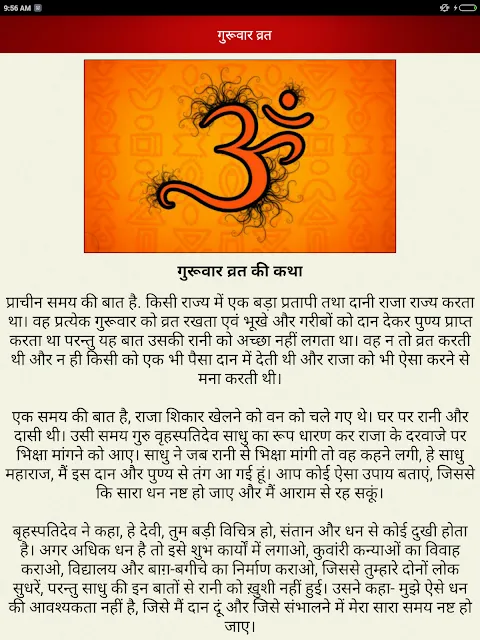 9:56 AM
गुरूवार व्रत
ॐ
गुरूवार व्रत की कथा
प्राचीन समय की बात है. किसी राज्य में एक बड़ा प्रतापी तथा दानी राजा राज्य करता
था। वह प्रत्येक गुरूवार को व्रत रखता एवं भूखे और गरीबों को दान देकर पुण्य प्राप्त
करता था परन्तु यह बात उसकी रानी को अच्छा नहीं लगता था। वह न तो व्रत करती
थी और न ही किसी को एक भी पैसा दान में देती थी और राजा को भी ऐसा करने से
मना करती थी।
एक समय की बात है, राजा शिकार खेलने को वन को चले गए थे। घर पर रानी और
दासी थी। उसी समय गुरु वृहस्पतिदेव साधु का रूप धारण कर राजा के दरवाजे पर
भिक्षा मांगने को आए। साधु ने जब रानी से भिक्षा मांगी तो वह कहने लगी, हे साधु
महाराज, मैं इस दान और पुण्य से तंग आ गई हूं। आप कोई ऐसा उपाय बताएं, जिससे
कि सारा धन नष्ट हो जाए और मैं आराम से रह सकूं।
बृहस्पतिदेव ने कहा, हे देवी, तुम बड़ी विचित्र हो, संतान और धन से कोई दुखी होता
है। अगर अधिक धन है तो इसे शुभ कार्यों में लगाओ, कुवांरी कन्याओं का विवाह
कराओ, विद्यालय और बाग़-बगीचे का निर्माण कराओ, जिससे तुम्हारे दोनों लोक
सुधरें, परन्तु साधु की इन बातों से रानी को ख़ुशी नहीं हुई। उसने कहा- मुझे ऐसे धन
की आवश्यकता नहीं है, जिसे मैं दान दूं और जिसे संभालने में मेरा सारा समय नष्ट हो
जाए।